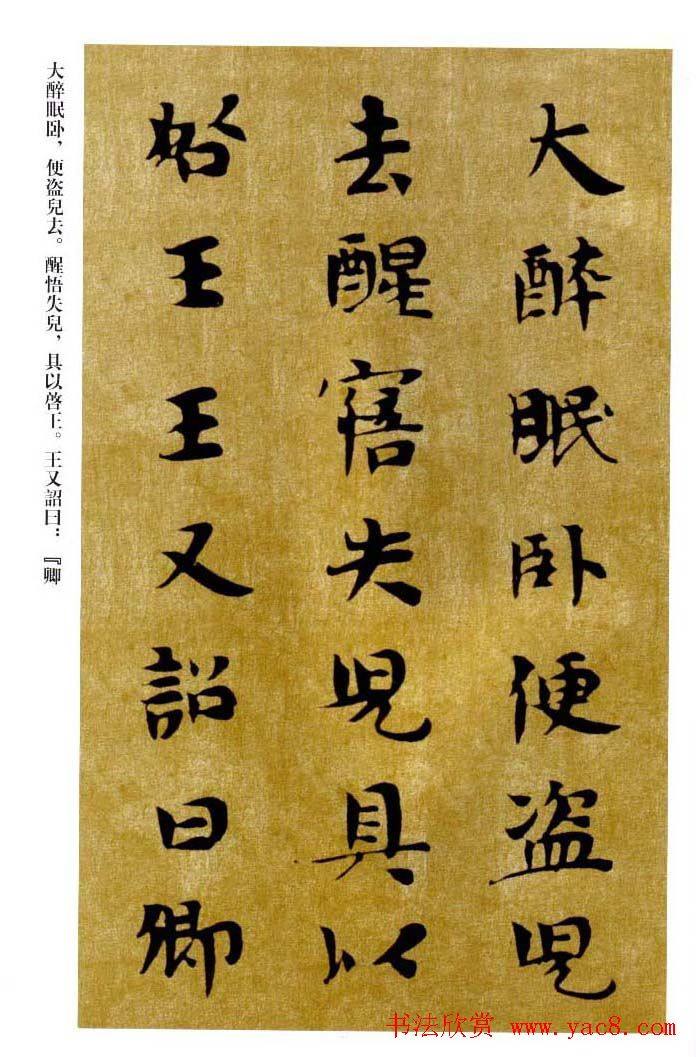 大醉眠卧便盗兒
去醒寤失兒具以
啓王王又詔曰卿
大醉眠卧，便盗兒去。醒悟失兒，具以啓上。王又詔曰：『卿
书法欣赏 www.yac8.com